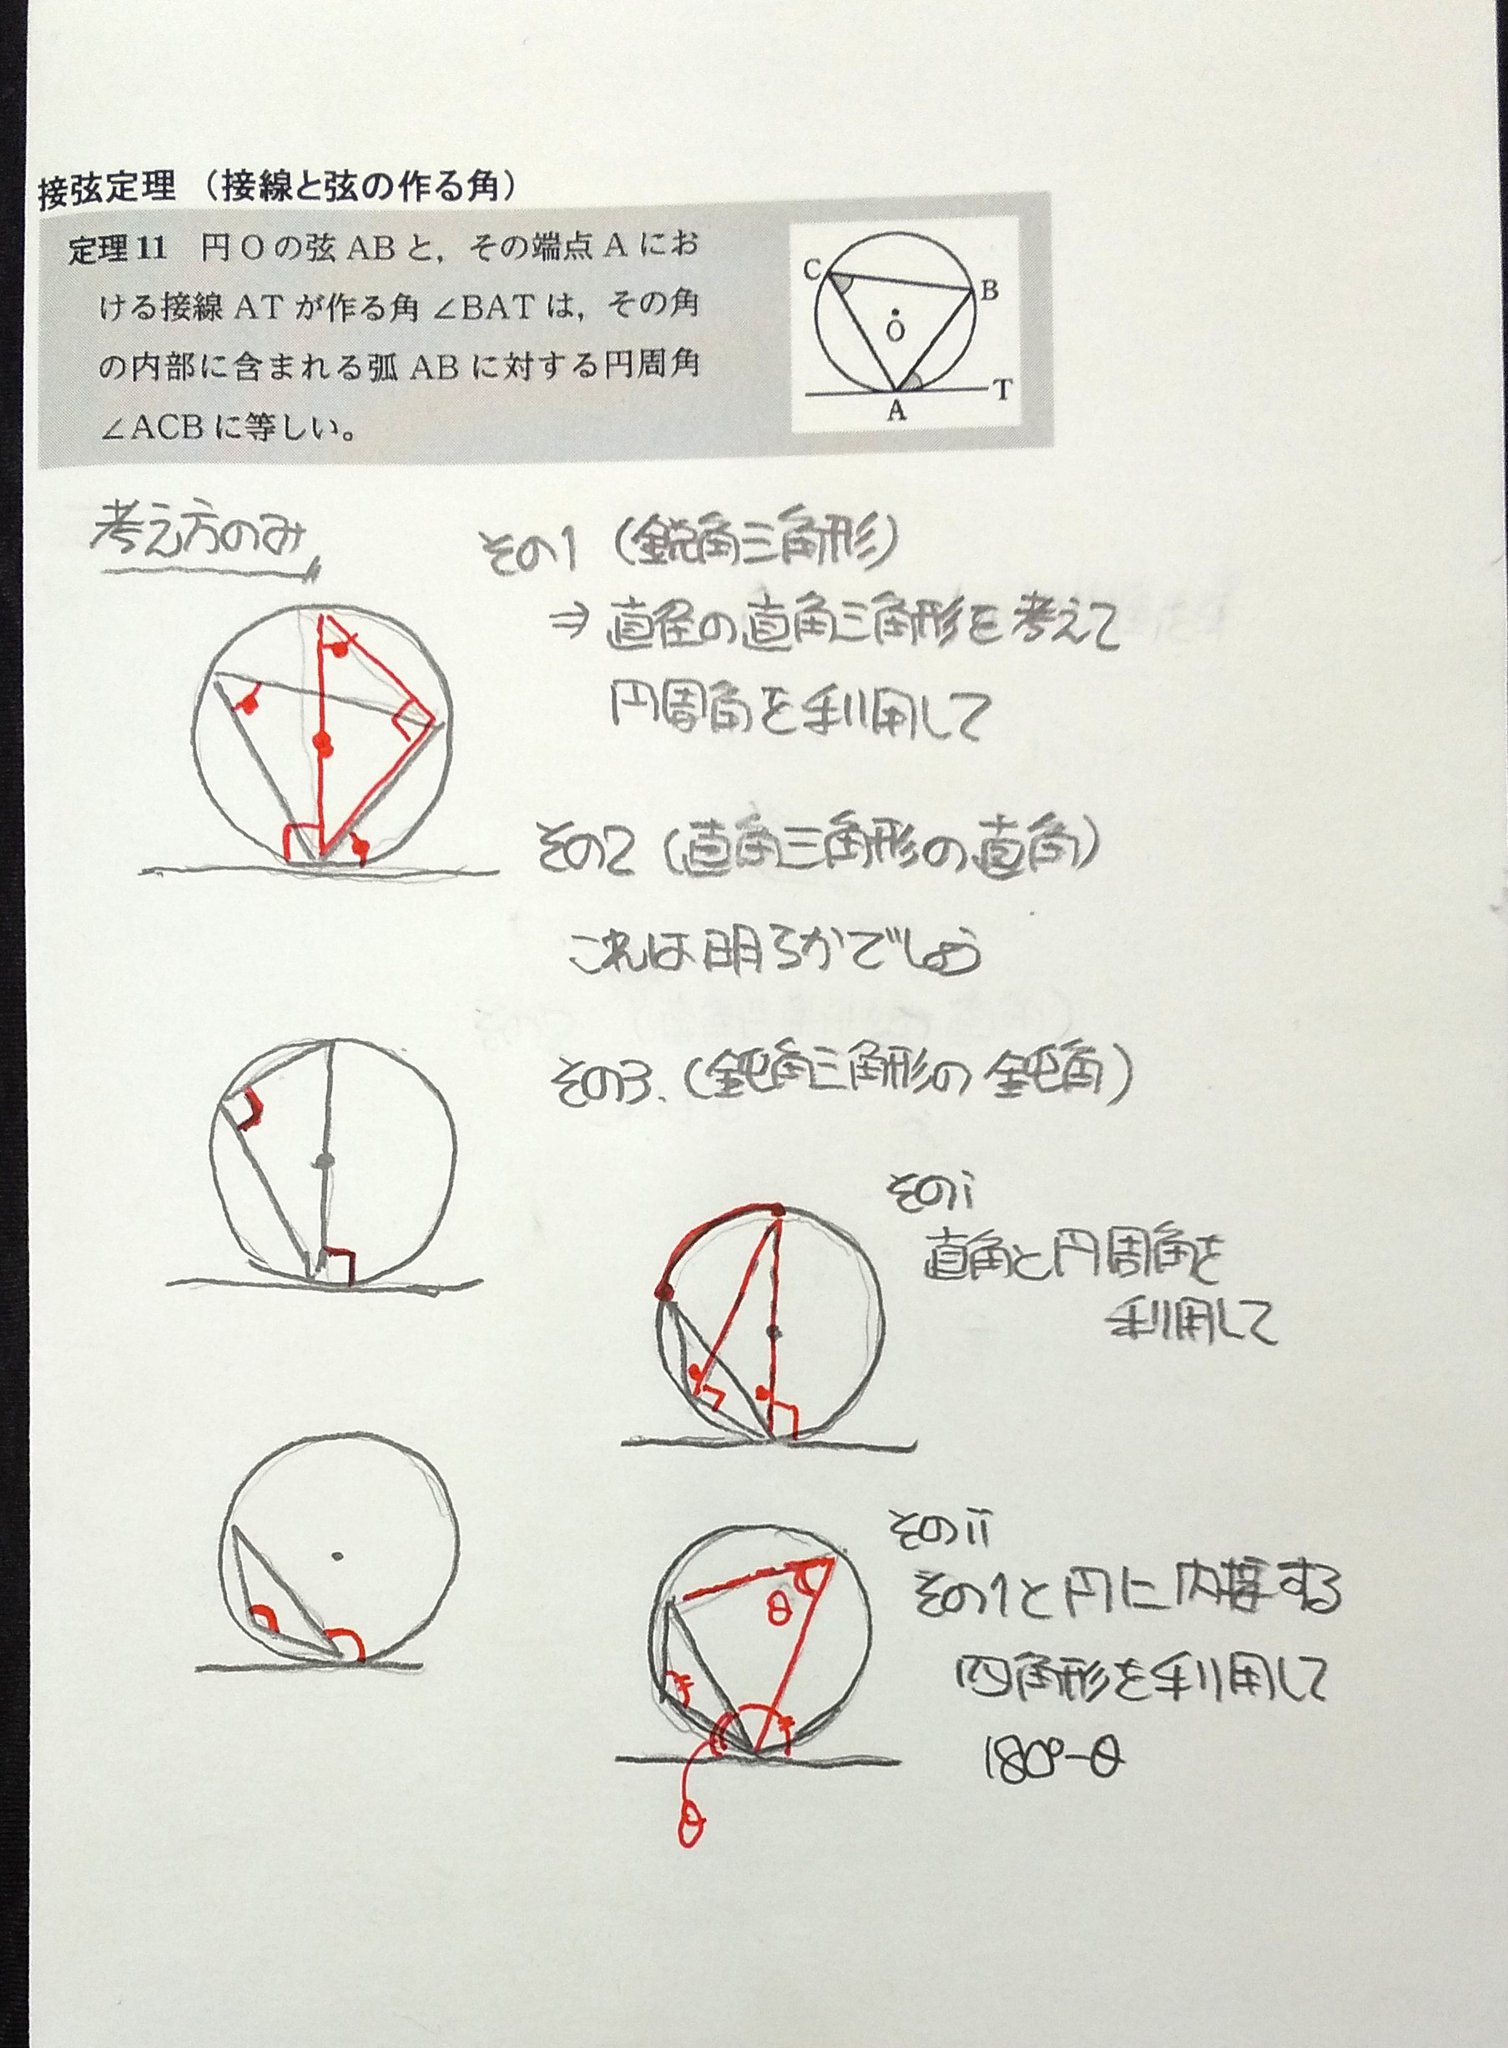 接弦定理（接線と弦の作る角）
定理11　円Oの弦ABと，その端点Aにお
ける接線ATが作る角∠BATは，その角
の内部に含まれる弧ABに対する円周角
∠ACBに等しい。
C
B
O
T
A
考え方のみ
その1（鋭角三角形）
⇒直径の直角三角形を考えて
円周角を利用して
その2（直角三角形の直角）
これは明らかでしょう
その3．（鈍角三角形の鈍角）
そのi
直角と円周角を
利用して
そのii
その1と円に内接する
四角形を利用して
180°-θ
θ
θ